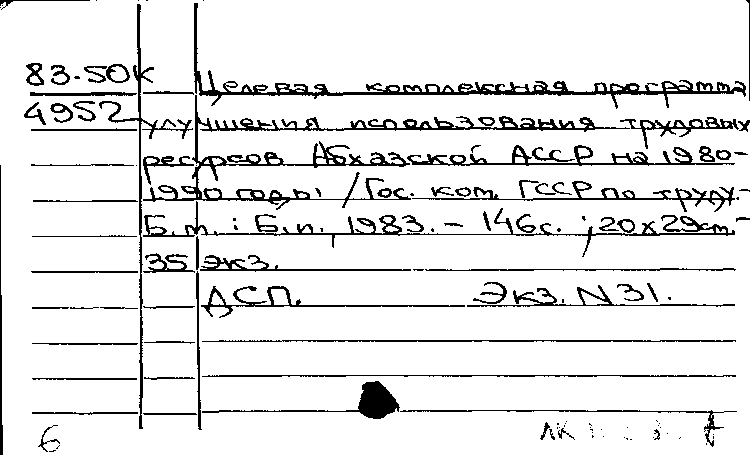 83.50К Целевая комплексная программа
4952 улучшения использования трудовых
ресурсов Абхазской АССР на 1980-
1990 годы /Гос. ком. ГССР по труду.-
Б.м. : Б.и., 1983. - 146с. ; 20х29см.-
35 экз.
ДСП. Экз. N 31.
6